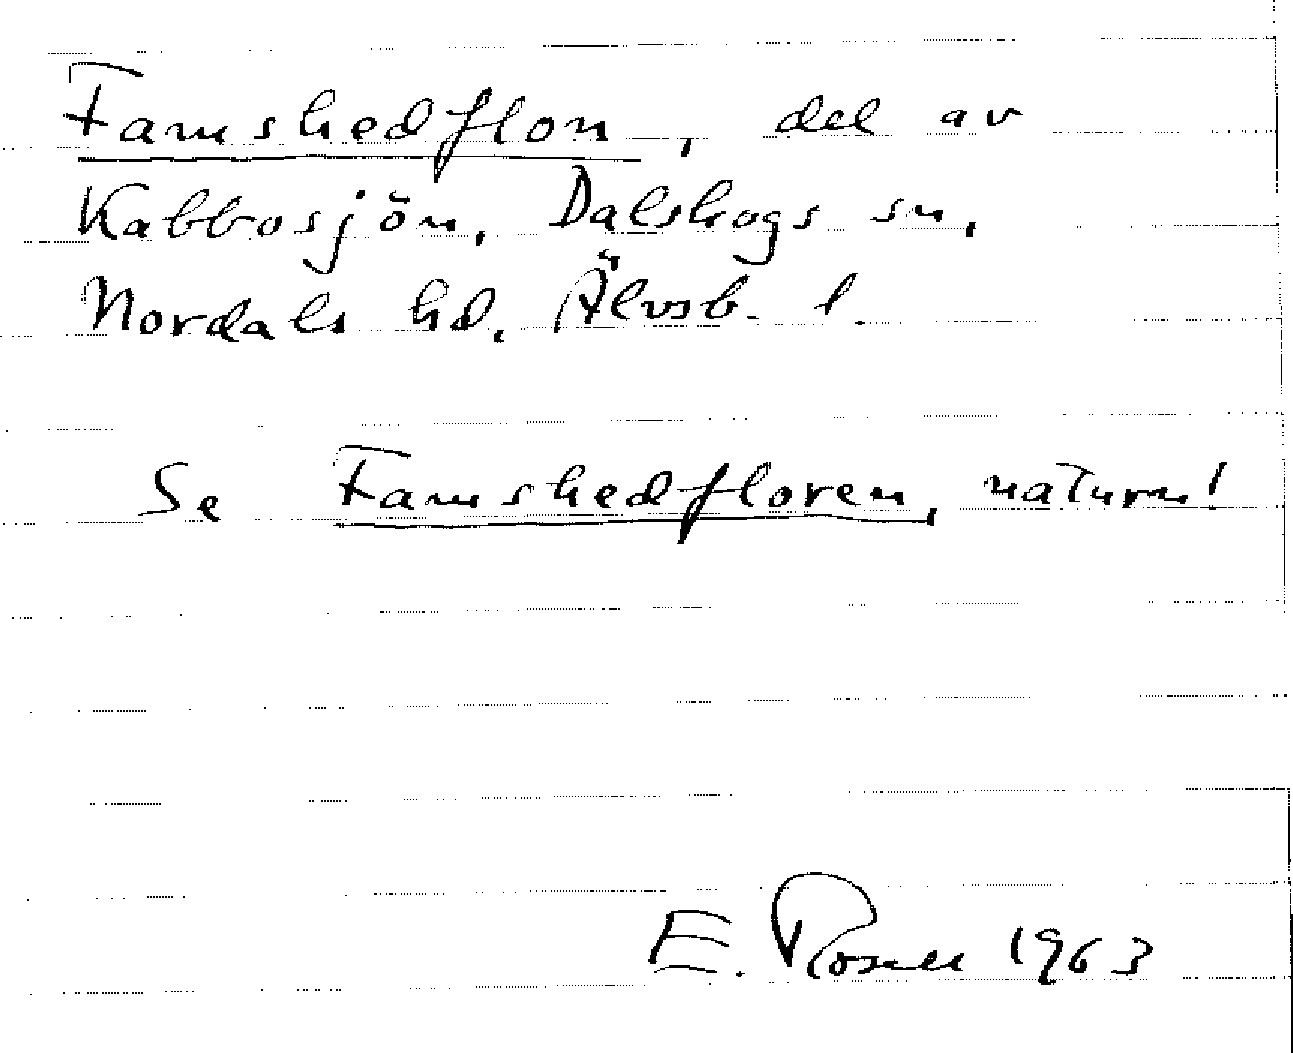 Famshedflon, del av
Kabbosjön, Dalskogs sn,
Nordals hd. Älvsb. l.
Se Famshedfloren, naturn!
E. Rosell 1963